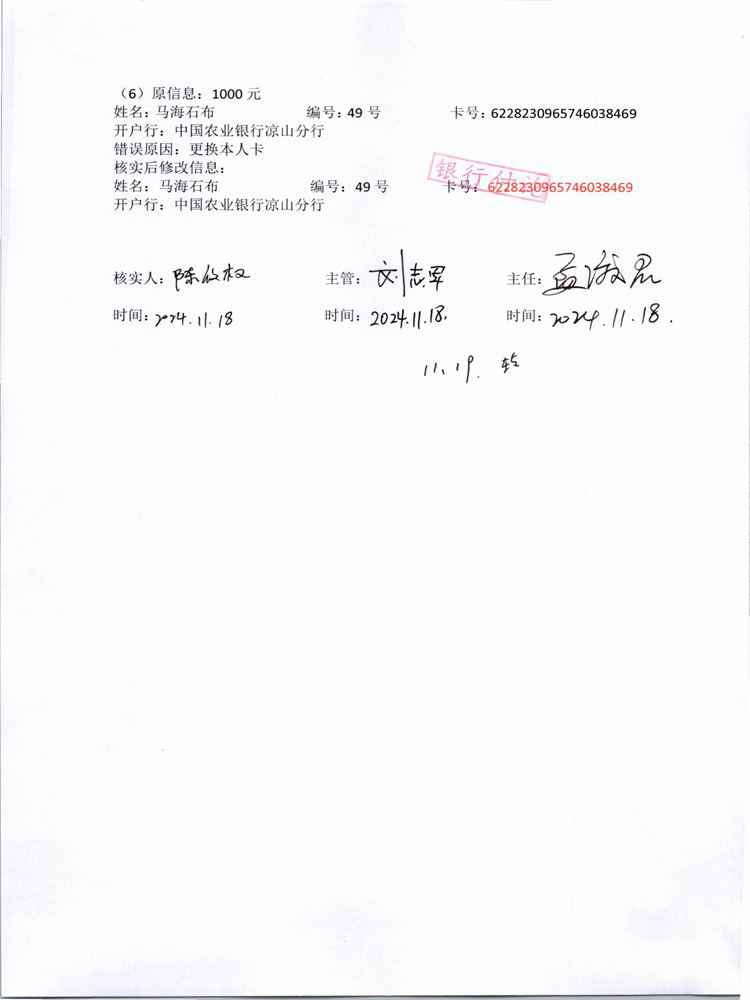 （6）原信息：1000 元
姓名：马海石布 编号：49 号 卡号：6228230965746038469
开户行：中国农业银行凉山分行
错误原因：更换本人卡
核实后修改信息：
姓名：马海石布 编号：49 号 卡号：6228230965746038469
银行付讫
开户行：中国农业银行凉山分行
核实人：陈 权 主管：刘志军 主任：孟淑君
时间：2024.11.18 时间：2024.11.18. 时间：2024.11.18.
11.19.